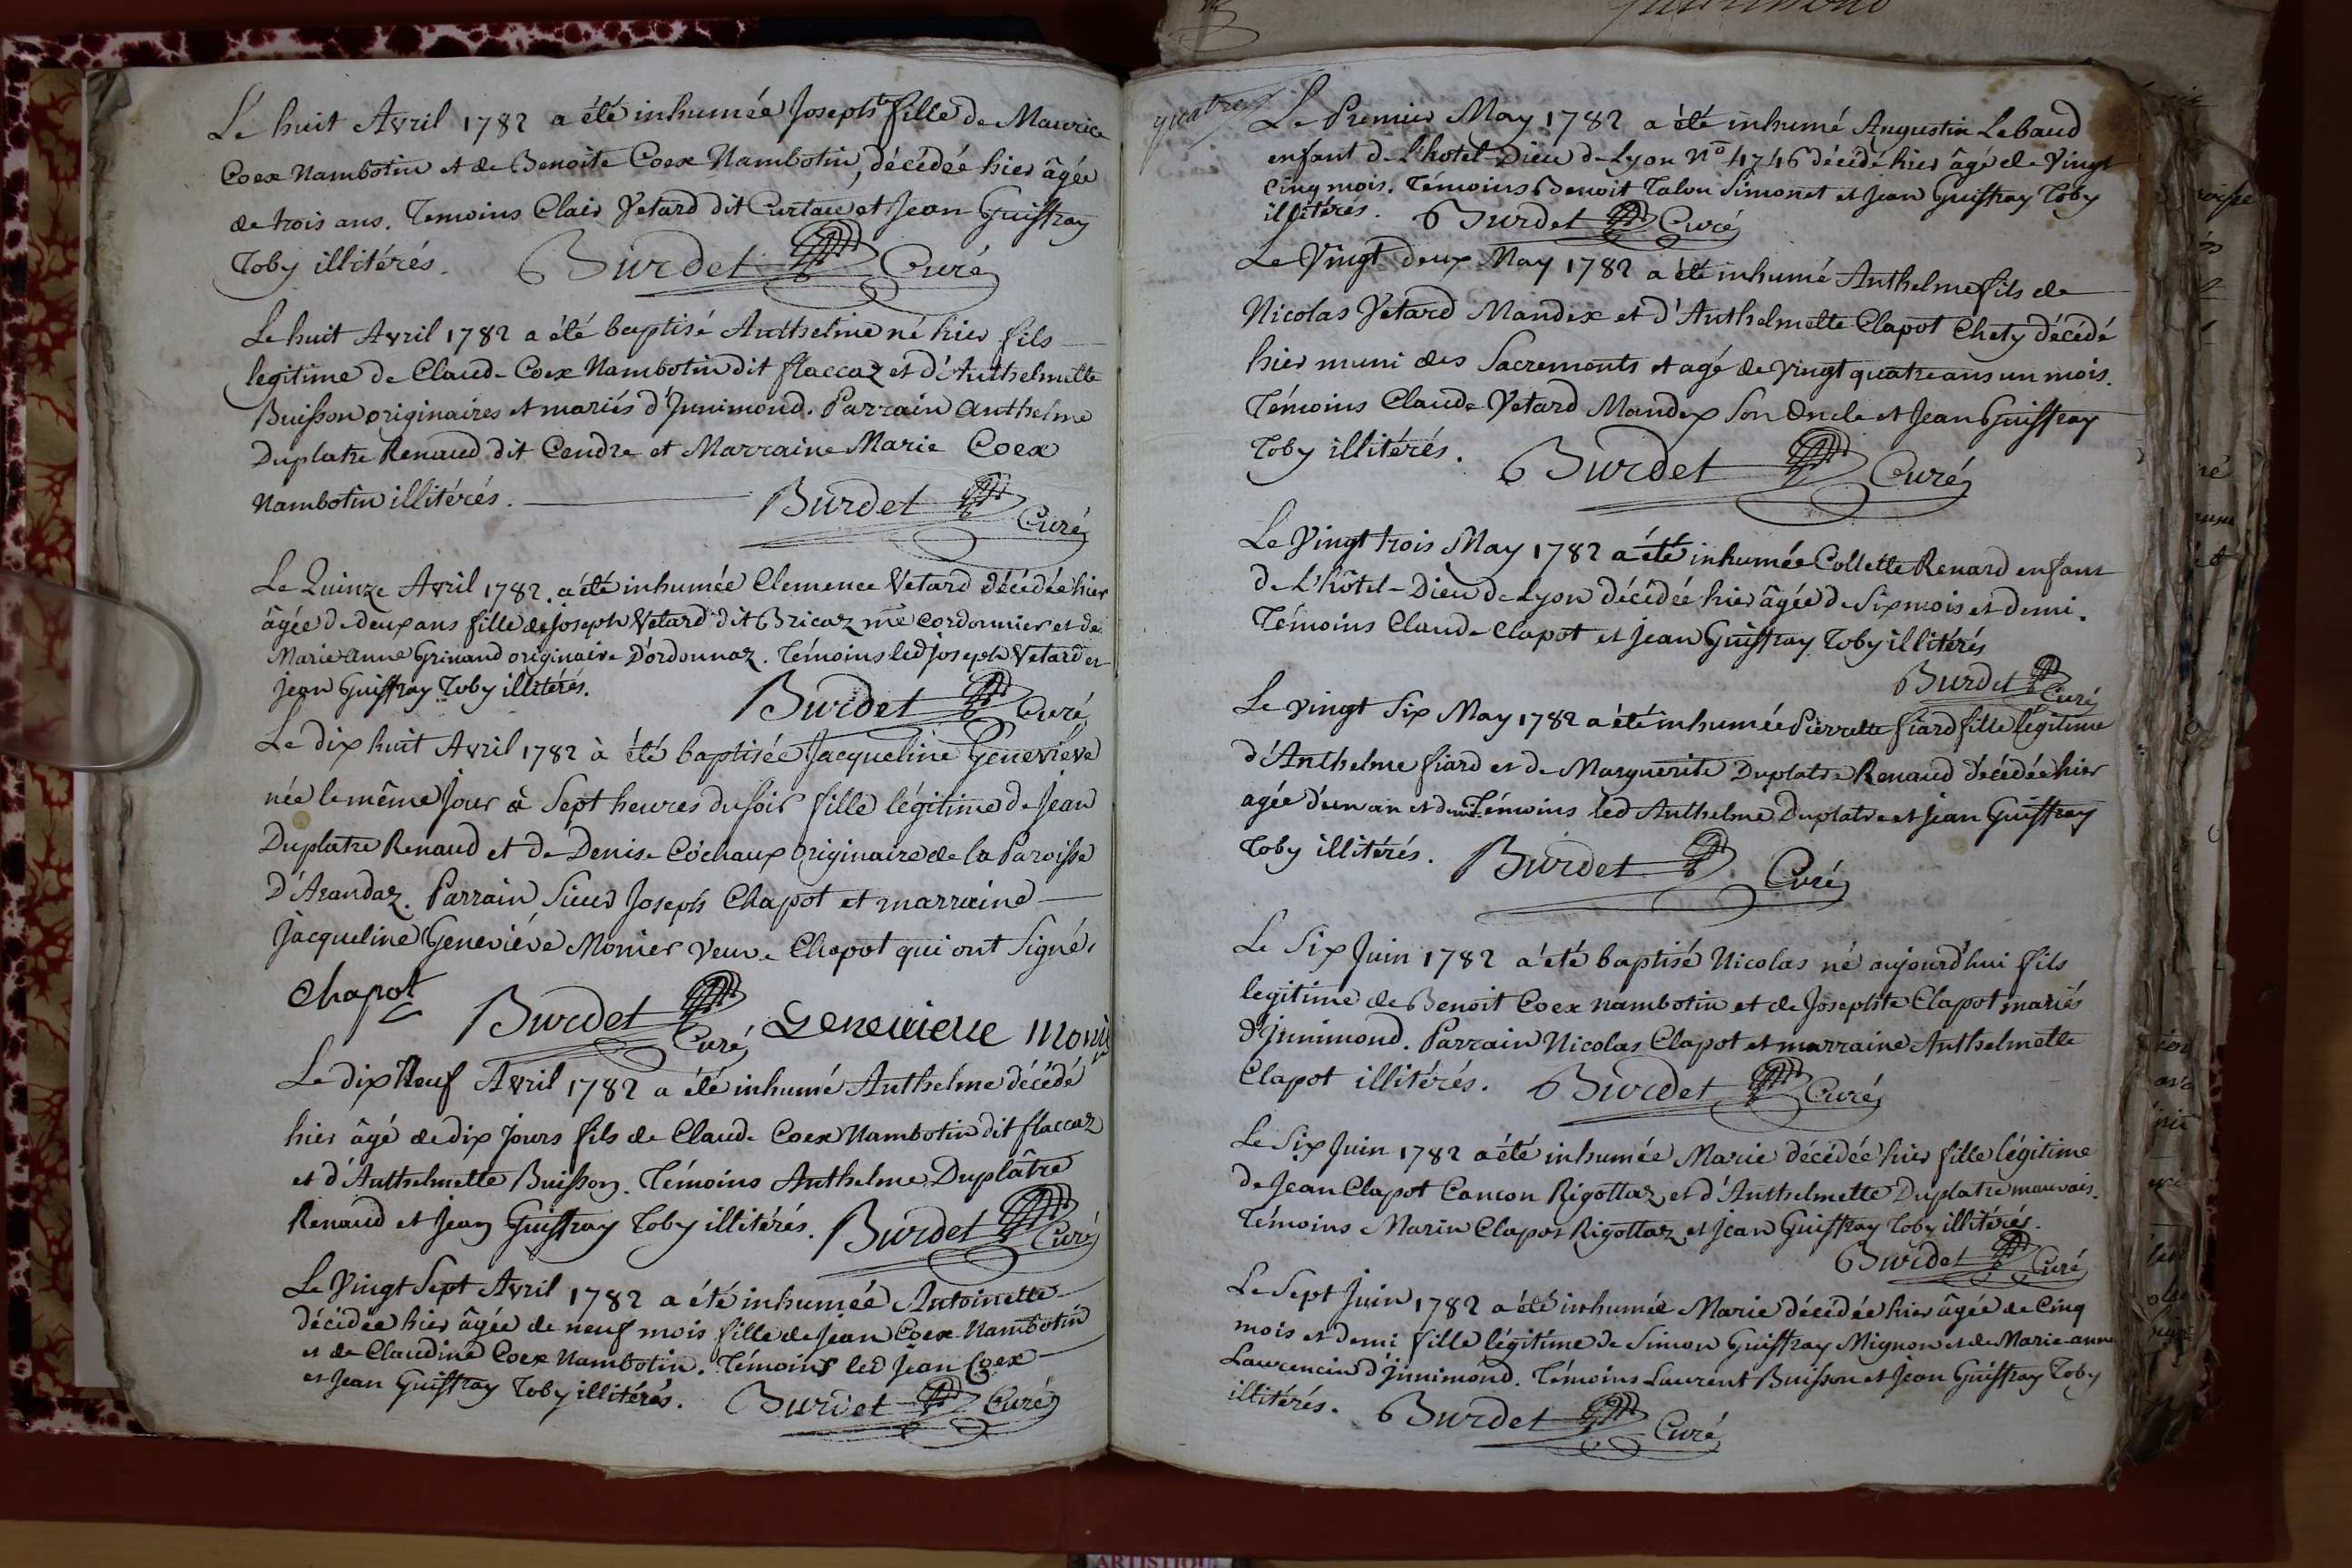 Le huit Avril 1782 a été inhumée Josephte fille de Maurice
Coex Nambotin et de Benoite Coex Nambotin, décédée hier âgée
de trois ans. Temoins Clair Vetard dit Curtau et Jean Guiffray
Toby illitérés. Burdet Curé
Le huit Avril 1782 a été baptisé Anthelme né hier fils
legitime de Claude Coex Nambotin dit flaccaz et d'Anthelmette
Buisson originaires et mariés d'Jnnimond. Parrain Anthelme
Duplatre Renaud dit Cendre et Marraine Marie Coex
Nambotin illitérés. Burdet
Curé
Le Quinze Avril 1782. a été inhumée Clemence Vetard décédée hier
âgée de deux ans fille de joseph Vetard dit Bricaz me cordonnier et de
Marie anne Grinand originaire D'ordonnaz. Témoins led joseph Vetard et
jean Guiffray Toby illitérés. Burdet Curé
Le dix huit Avril 1782 à été baptisée Jacqueline Geneviéve
née le même jour à Sept heures du soir fille légitime de Jean
Duplatre Renaud et de Denise Cochaux originaire de la Paroisse
D'Arandaz. Parrain Sieur Joseph Chapot et marraine
Jacqueline Geneviéve Monier Veuve Chapot qui ont Signés
Chapot Burdet Curé Genevieve moni
Le dix Neuf Avril 1782 a été inhumé Anthelme décédé
hier âgé de dix jours fils de Claude Coex Nambotin dit flaccaz
et d'Anthelmette Buisson. Témoins Anthelme Duplâtre
Renaud et Jean Guiffray Toby illitérés. Burdet Curé
Le Vingt Sept Avril 1782 a été inhumée Antoinette
décédée hier âgée de neuf mois fille de Jean Coex Nambotin
et de Claudine Coex Nambotin. Témoins led Jean Coex
et Jean Guiffray Toby illitérés. Burdet Curé
quatre
Le Premier May 1782 a été inhumé Augustin Lebaud
enfant de L'hotel-Dieu de Lyon No 4746 décédé hier âgé de Vingt
Cinq mois. Témoins Benoit Talon Simonet et Jean Guiffray Toby
illitérés. Burdet Curé
Le Vingt deux May 1782 a été inhumé Anthelme fils de
Nicolas Vetard Mandex et d'Anthelmette Clapot Chety décédé
hier muni des Sacrements et agé de vingt quatre ans un mois.
Témoins Claude Vetard Mandex Son Oncle et Jean Guiffray
Toby illitérés. Burdet Curé
Le Vingt trois May 1782 a été inhumée Collette Renard enfant
de L'hôtel-Dieu de Lyon décédée hier âgée de Six mois et demi.
Témoins Claude Clapot et Jean Guiffray Toby illitérés
Burdet Curé
Le vingt Six May 1782 a été inhumée Pierrette fiard fille légitime
d'Anthelme fiard et de Marguerite Duplatre Renaud décédée hier
agée d'un an et demi. Témoins led Anthelme Duplatre et Jean Guiffray
Toby illitérés. Burdet Curé
Le Six Juin 1782 a été baptisé Nicolas né aujourd'hui fils
legitime de Benoit Coex nambotin et de Josephte Clapot mariés
d'Jnnimond. Parrain Nicolas Clapot et marraine Anthelmette
Clapot illitérés. Burdet Curé
Le Six Juin 1782 a été inhumée Marie décédée hier fille légitime
de Jean Clapot Cancon Rigottaz et d'Anthelmette Duplatre mauvais.
Témoins Marin Clapot Rigottaz et Jean Guiffray Toby illitérés.
Burdet Curé
Le Sept Juin 1782 a été inhumée Marie décédée hier âgée de Cinq
mois et demi fille légitime de Simon Guiffray Mignon et de Marie anne
Laurencin d'Jnnimond. Témoins Laurent Buisson et Jean Guiffray Toby
illitérés. Burdet Curé
ARTISTIQUE